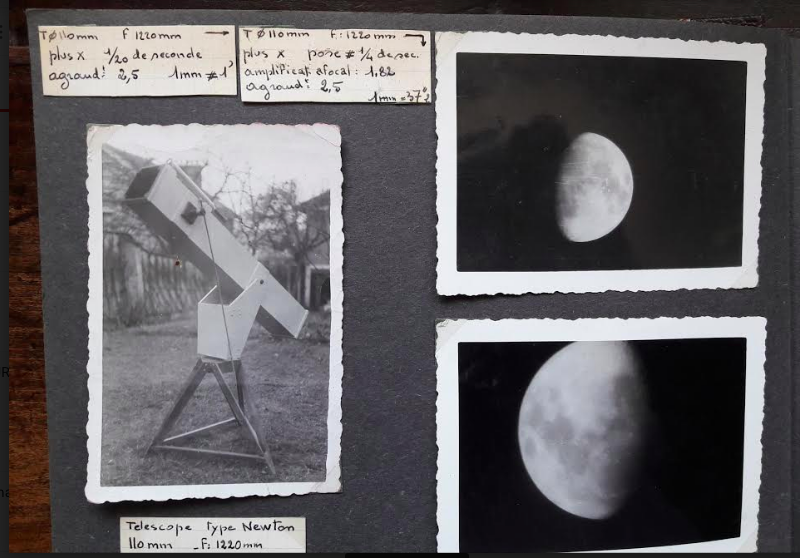 T Ø 110mm F 1220mm →
plus x 1/20 de seconde
agrandt 2,5 1mm # 1'
T Ø 110mm F: 1220mm
plus x pose # 1/4 de sec.
amplificat afocal: 1,82
agrandt 2,5
1mm = 37"
Telescope type Newton
110mm - F: 1220mm